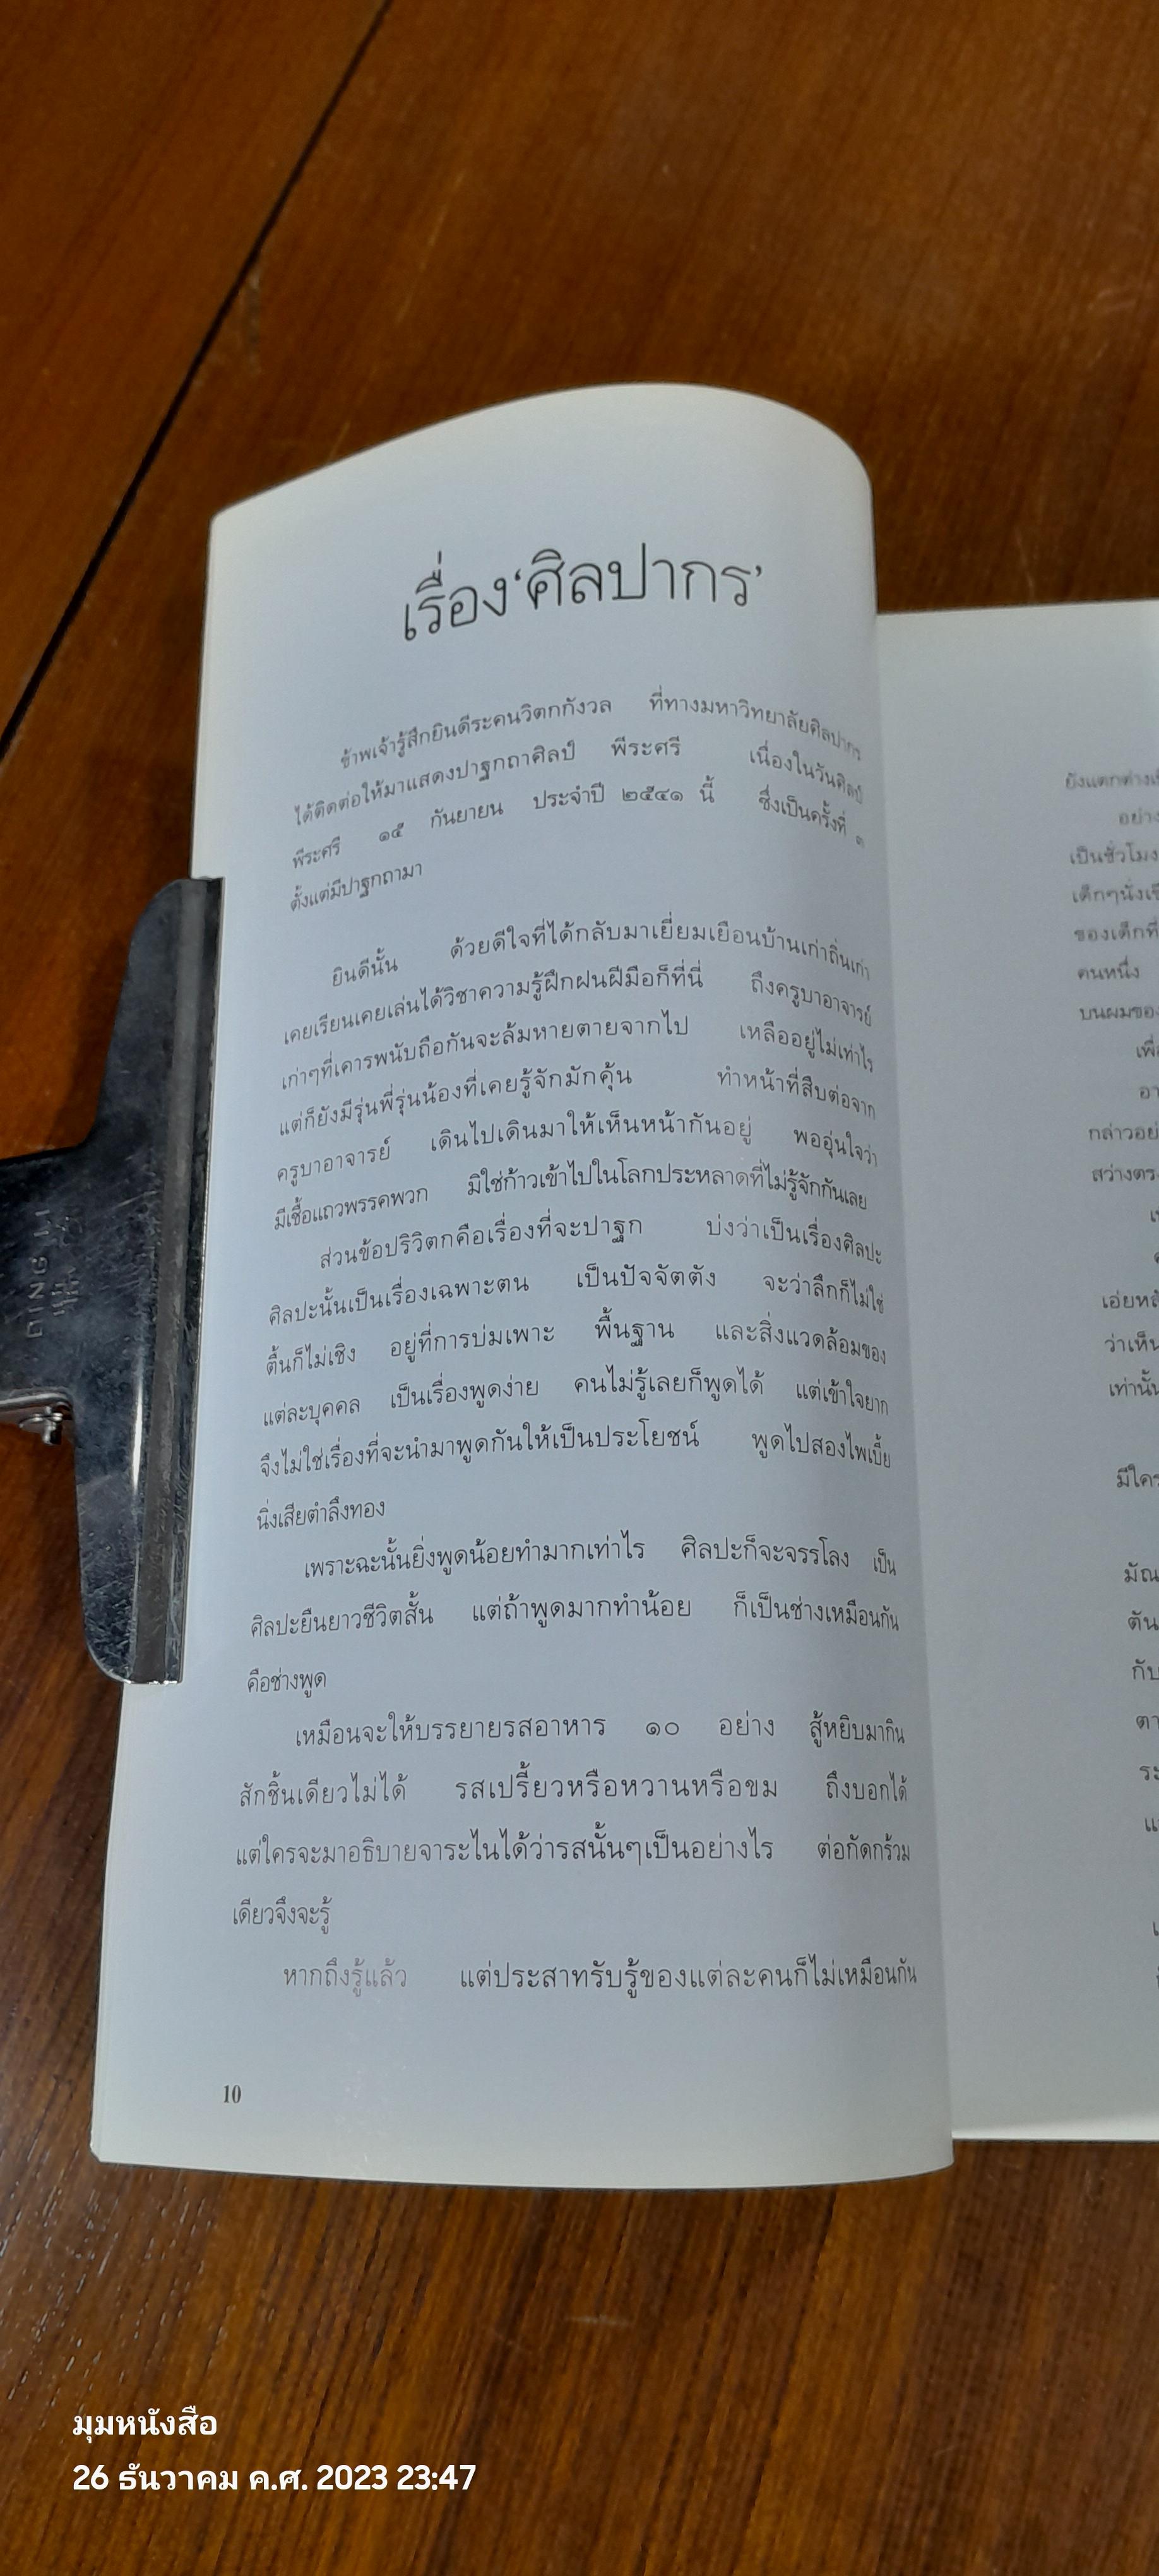 เรื่อง‘ศิลปากร’
ข้าพเจ้ารู้สึกยินดีระคนวิตกกังวล ที่ทางมหาวิทยาลัยศิลปากร
ได้ติดต่อให้มาแสดงปาฐกถาศิลป์ พีระศรี เนื่องในวันศิลป์
พีระศรี ๑๕ กันยายน ประจำปี ๒๕๔๑ นี้ ซึ่งเป็นครั้งที่ ๓
ตั้งแต่มีปาฐกถามา
ยินดีนั้น ด้วยดีใจที่ได้กลับมาเยี่ยมเยือนบ้านเก่าถิ่นเก่า
เคยเรียนเคยเล่นได้วิชาความรู้ฝึกฝนฝีมือก็ที่นี่ ถึงครูบาอาจารย์
เก่าๆที่เคารพนับถือกันจะล้มหายตายจากไป เหลืออยู่ไม่เท่าไร
แต่ก็ยังมีรุ่นพี่รุ่นน้องที่เคยรู้จักมักคุ้น ทำหน้าที่สืบต่อจาก
ครูบาอาจารย์ เดินไปเดินมาให้เห็นหน้ากันอยู่ พออุ่นใจว่า
มีเชื้อแถวพรรคพวก มิใช่ก้าวเข้าไปในโลกประหลาดที่ไม่รู้จักกันเลย
ส่วนข้อปริวิตกคือเรื่องที่จะปาฐก บ่งว่าเป็นเรื่องศิลปะ
ศิลปะนั้นเป็นเรื่องเฉพาะตน เป็นปัจจัตตัง จะว่าลึกก็ไม่ใช่
ตื้นก็ไม่เชิง อยู่ที่การบ่มเพาะ พื้นฐาน และสิ่งแวดล้อมของ
แต่ละบุคคล เป็นเรื่องพูดง่าย คนไม่รู้เลยก็พูดได้ แต่เข้าใจยาก
จึงไม่ใช่เรื่องที่จะนำมาพูดกันให้เป็นประโยชน์ พูดไปสองไพเบี้ย
นิ่งเสียตำลึงทอง
เพราะฉะนั้นยิ่งพูดน้อยทำมากเท่าไร ศิลปะก็จะจรรโลง เป็น
ศิลปะยืนยาวชีวิตสั้น แต่ถ้าพูดมากทำน้อย ก็เป็นช่างเหมือนกัน
คือช่างพูด
เหมือนจะให้บรรยายรสอาหาร ๑๐ อย่าง สู้หยิบมากิน
สักชิ้นเดียวไม่ได้ รสเปรี้ยวหรือหวานหรือขม ถึงบอกได้
แต่ใครจะมาอธิบายจาระไนได้ว่ารสนั้นๆเป็นอย่างไร ต่อกัดกร้วม
เดียวจึงจะรู้
หากถึงรู้แล้ว แต่ประสาทรับรู้ของแต่ละคนก็ไม่เหมือนกัน
10
ยังแตกต่าง
อย่าง
เป็นชั่วโมง
เด็กๆนั่ง
ของเด็กที่
คนหนึ่ง
บนผมของ
กล่าวอย่
สว่างตรง
ว่าเห็น
เท่านั้น
มีใคร
กับ
มุมหนังสือ
26 ธันวาคม ค.ศ. 2023 23:47